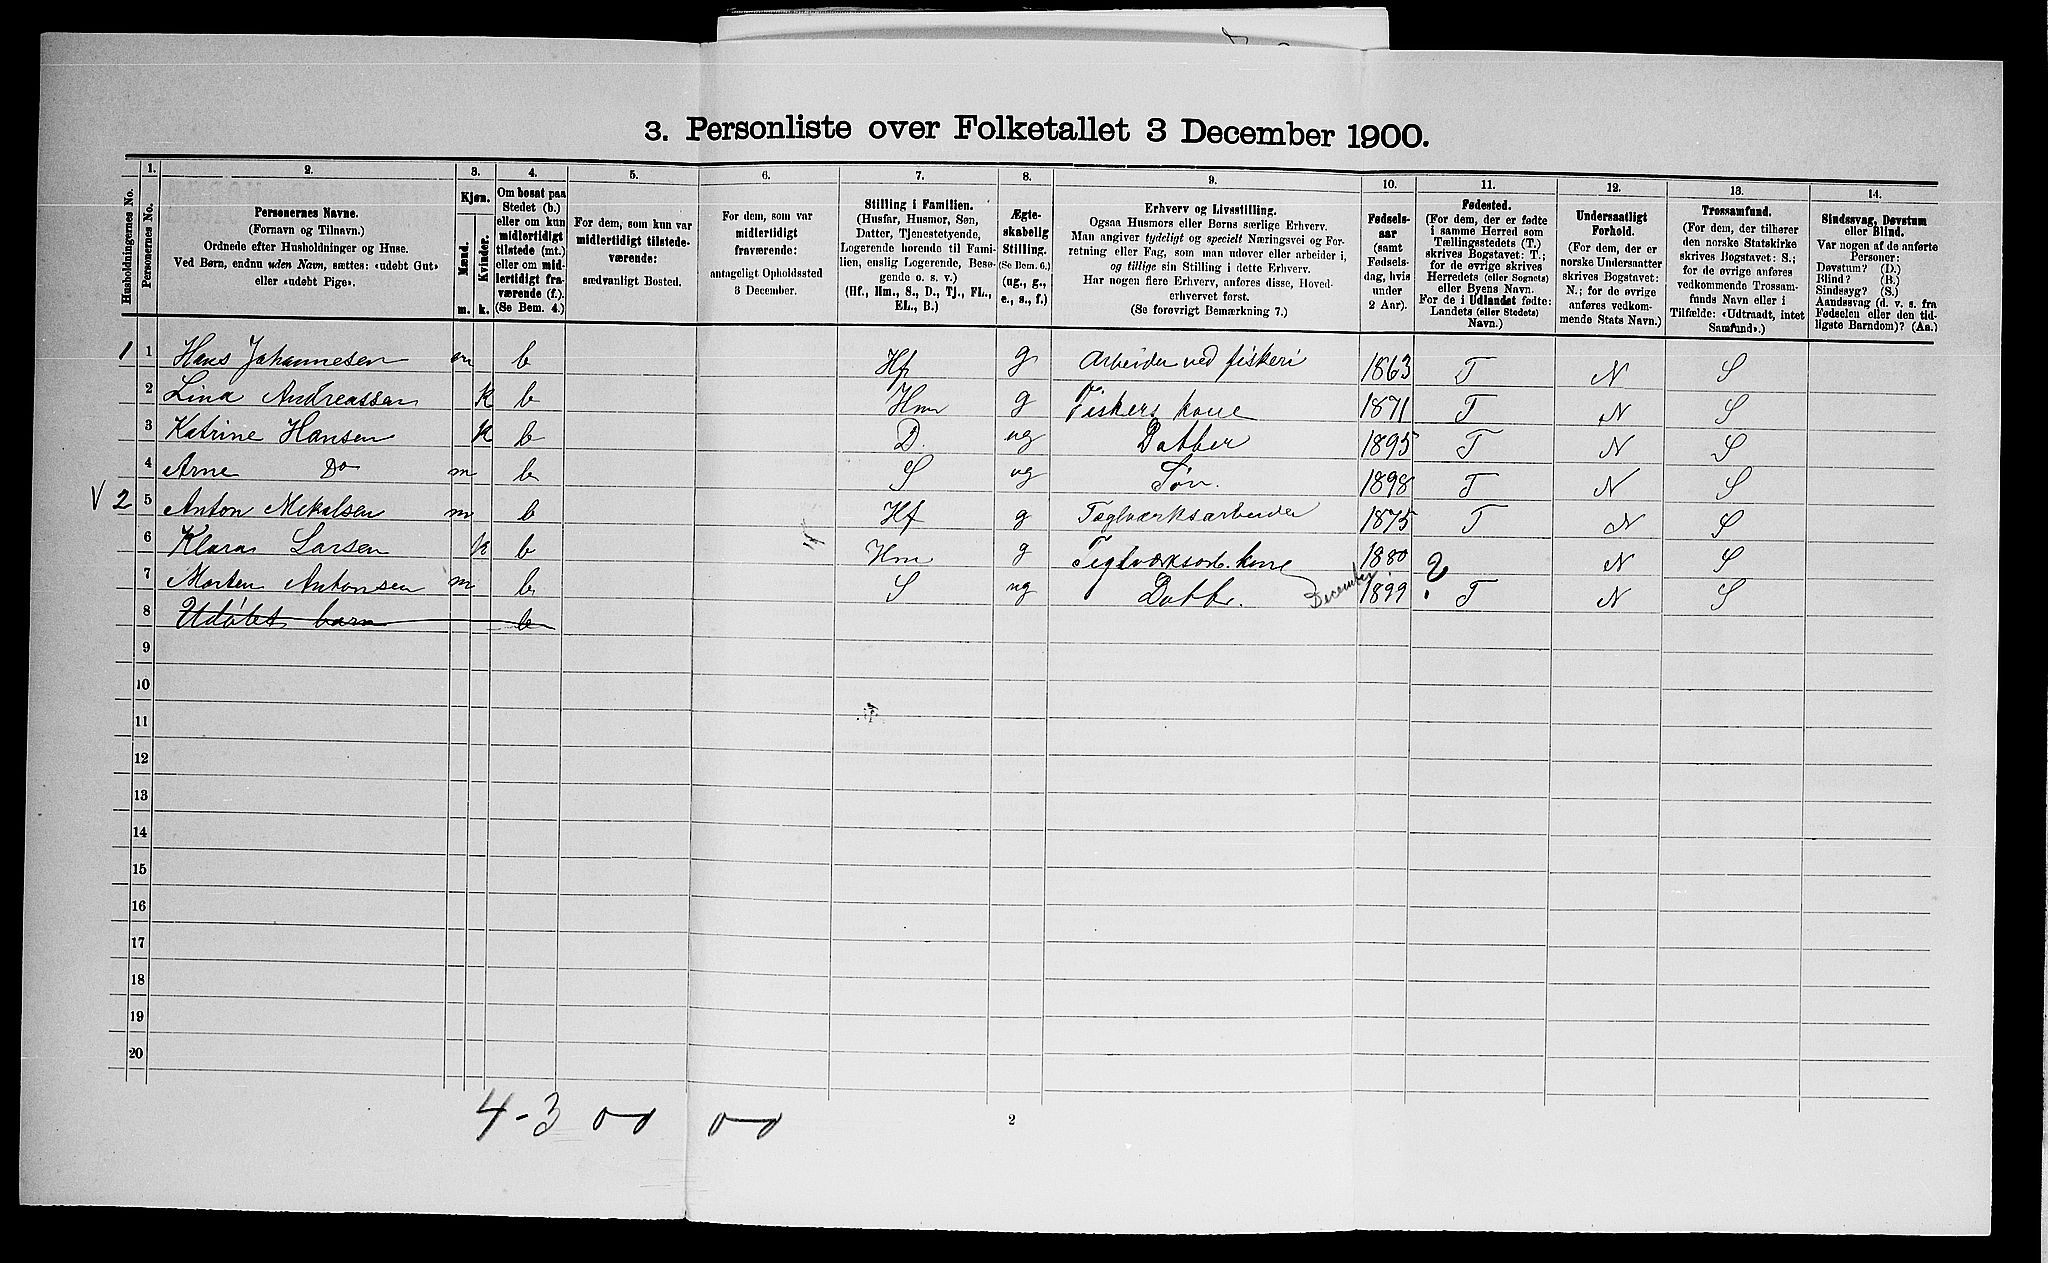 3. Personliste over Folketallet 3 December 1900.
Husholdningernes No.
1.
Personernes No.
2.
Personernes Navne.
(Fornavn og Tilnavn.)
Ordnede efter Husholdninger og Huse.
Ved Børn, endnu uden Navn, sættes: «udøbt Gut»
eller «udøbt Pige».
3.
Kjøn.
Mænd.
Kvinder.
m. k.
4.
Om bosat paa
Stedet (b.)
eller om kun
midlertidigt
tilstede (mt.)
eller om mid-
lertidigt fra-
værende (f.).
(Se Bem. 4.)
5.
For dem, som kun var
midlertidigt tilstede-
værende:
sædvanligt Bosted.
6.
For dem, som var
midlertidigt
fraværende:
antageligt Opholdssted
3 December.
7.
Stilling i Familien.
(Husfar, Husmor, Søn,
Datter, Tjenestetyende,
Logerende hørende til Fami-
lien, enslig Logerende, Besø-
gende o. s. v.)
(Hf., Hm., S., D., Tj., FL.,
EL., B.)
8.
Ægte-
skabelig
Stilling.
(Se Bem. 6.)
(ug., g.,
e., s., f.)
9.
Erhverv og Livsstilling.
Ogsaa Husmors eller Børns særlige Erhverv.
Man angiver tydeligt og specielt Næringsvei og For-
retning eller Fag, som man udøver eller arbeider i,
og tillige sin Stilling i dette Erhverv.
Har nogen flere Erhverv, anføres disse, Hoved-
erhvervet først.
(Se forøvrigt Bemærkning 7.)
10.
Fødsels-
aar
(samt
Fødsels-
dag, hvis
under
2 Aar).
11.
Fødested.
(For dem, der er fødte
i samme Herred som
Tællingsstedets (T.)
skrives Bogstavet: T.;
for de øvrige skrives
Herredets (eller Sognets)
eller Byens Navn.
For de i Udlandet fødte:
Landets (eller Stedets)
Navn.)
12.
Undersaatligt
Forhold.
(For dem, der er
norske Undersaatter
skrives Bogstavet:
N.; for de øvrige
anføres vedkom-
mende Stats Navn.)
13.
Trossamfund.
(For dem, der tilhører
den norske Statskirke
skrives Bogstavet: S.;
for de øvrige anføres
vedkommende Trossam-
funds Navn eller i
Tilfælde: «Udtraadt, intet
Samfund».)
14.
Sindssvag, Døvstum
eller Blind.
Var nogen af de anførte
Personer:
Døvstum? (D.)
Blind? (B.)
Sindssyg? (S.)
Aandssvag (d. v. s. fra
Fødselen eller den tid-
ligste Barndom)? (Aa.)
1 1 Hans Johannesen m b Hf g Arbeider ved fiskeri 1863 T N S
2 Lina Andreassen k b Hm g Fiskers kone 1871 T N S
3 Katrine Hansen k b D. ug Datter 1895 T N S
4 Arne Do m b S ug Søn. 1898 T N S
V 2 5 Anton Mekalsen m b Hf g Teglværksarbeider 1875 T N S
6 Klara Larsen k b Hm g Teglværksarb. kone 1880 ? N S
7 Morten Antonsen m b S ug Datter. December 1899 T N S
8 Udøbt barn b
9
10
11
12
13
14
15
16
17
18
19
20
4-3 00 00
2